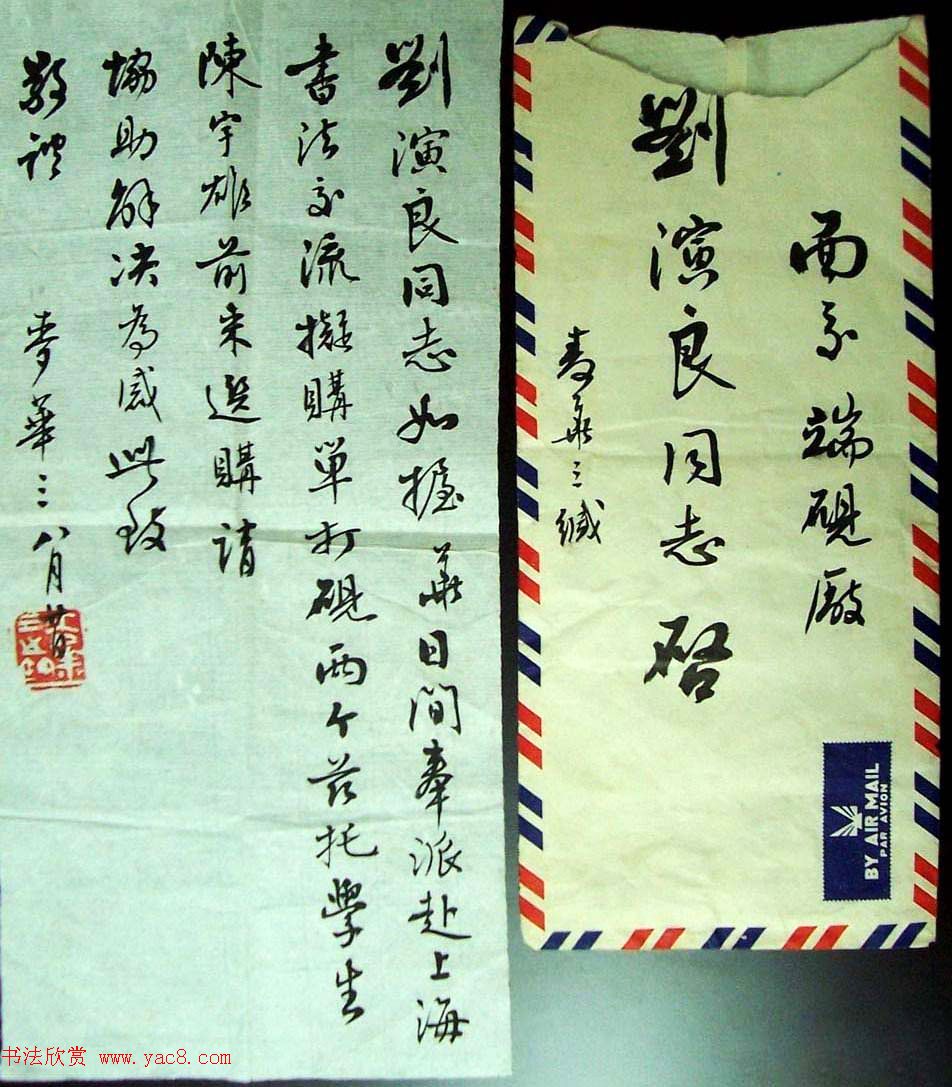 劉演良同志如握 華日間奉派赴上海
書法交流擬購單打硯兩个茲托學生
陳宇雄前来選購請
協助解决為感此致
敬礼
麥華三 八月廿日
面交端硯廠
劉演良同志 啓
麥華三緘
BY AIR MAIL
PAR AVION
书法欣赏 www.yac8.com